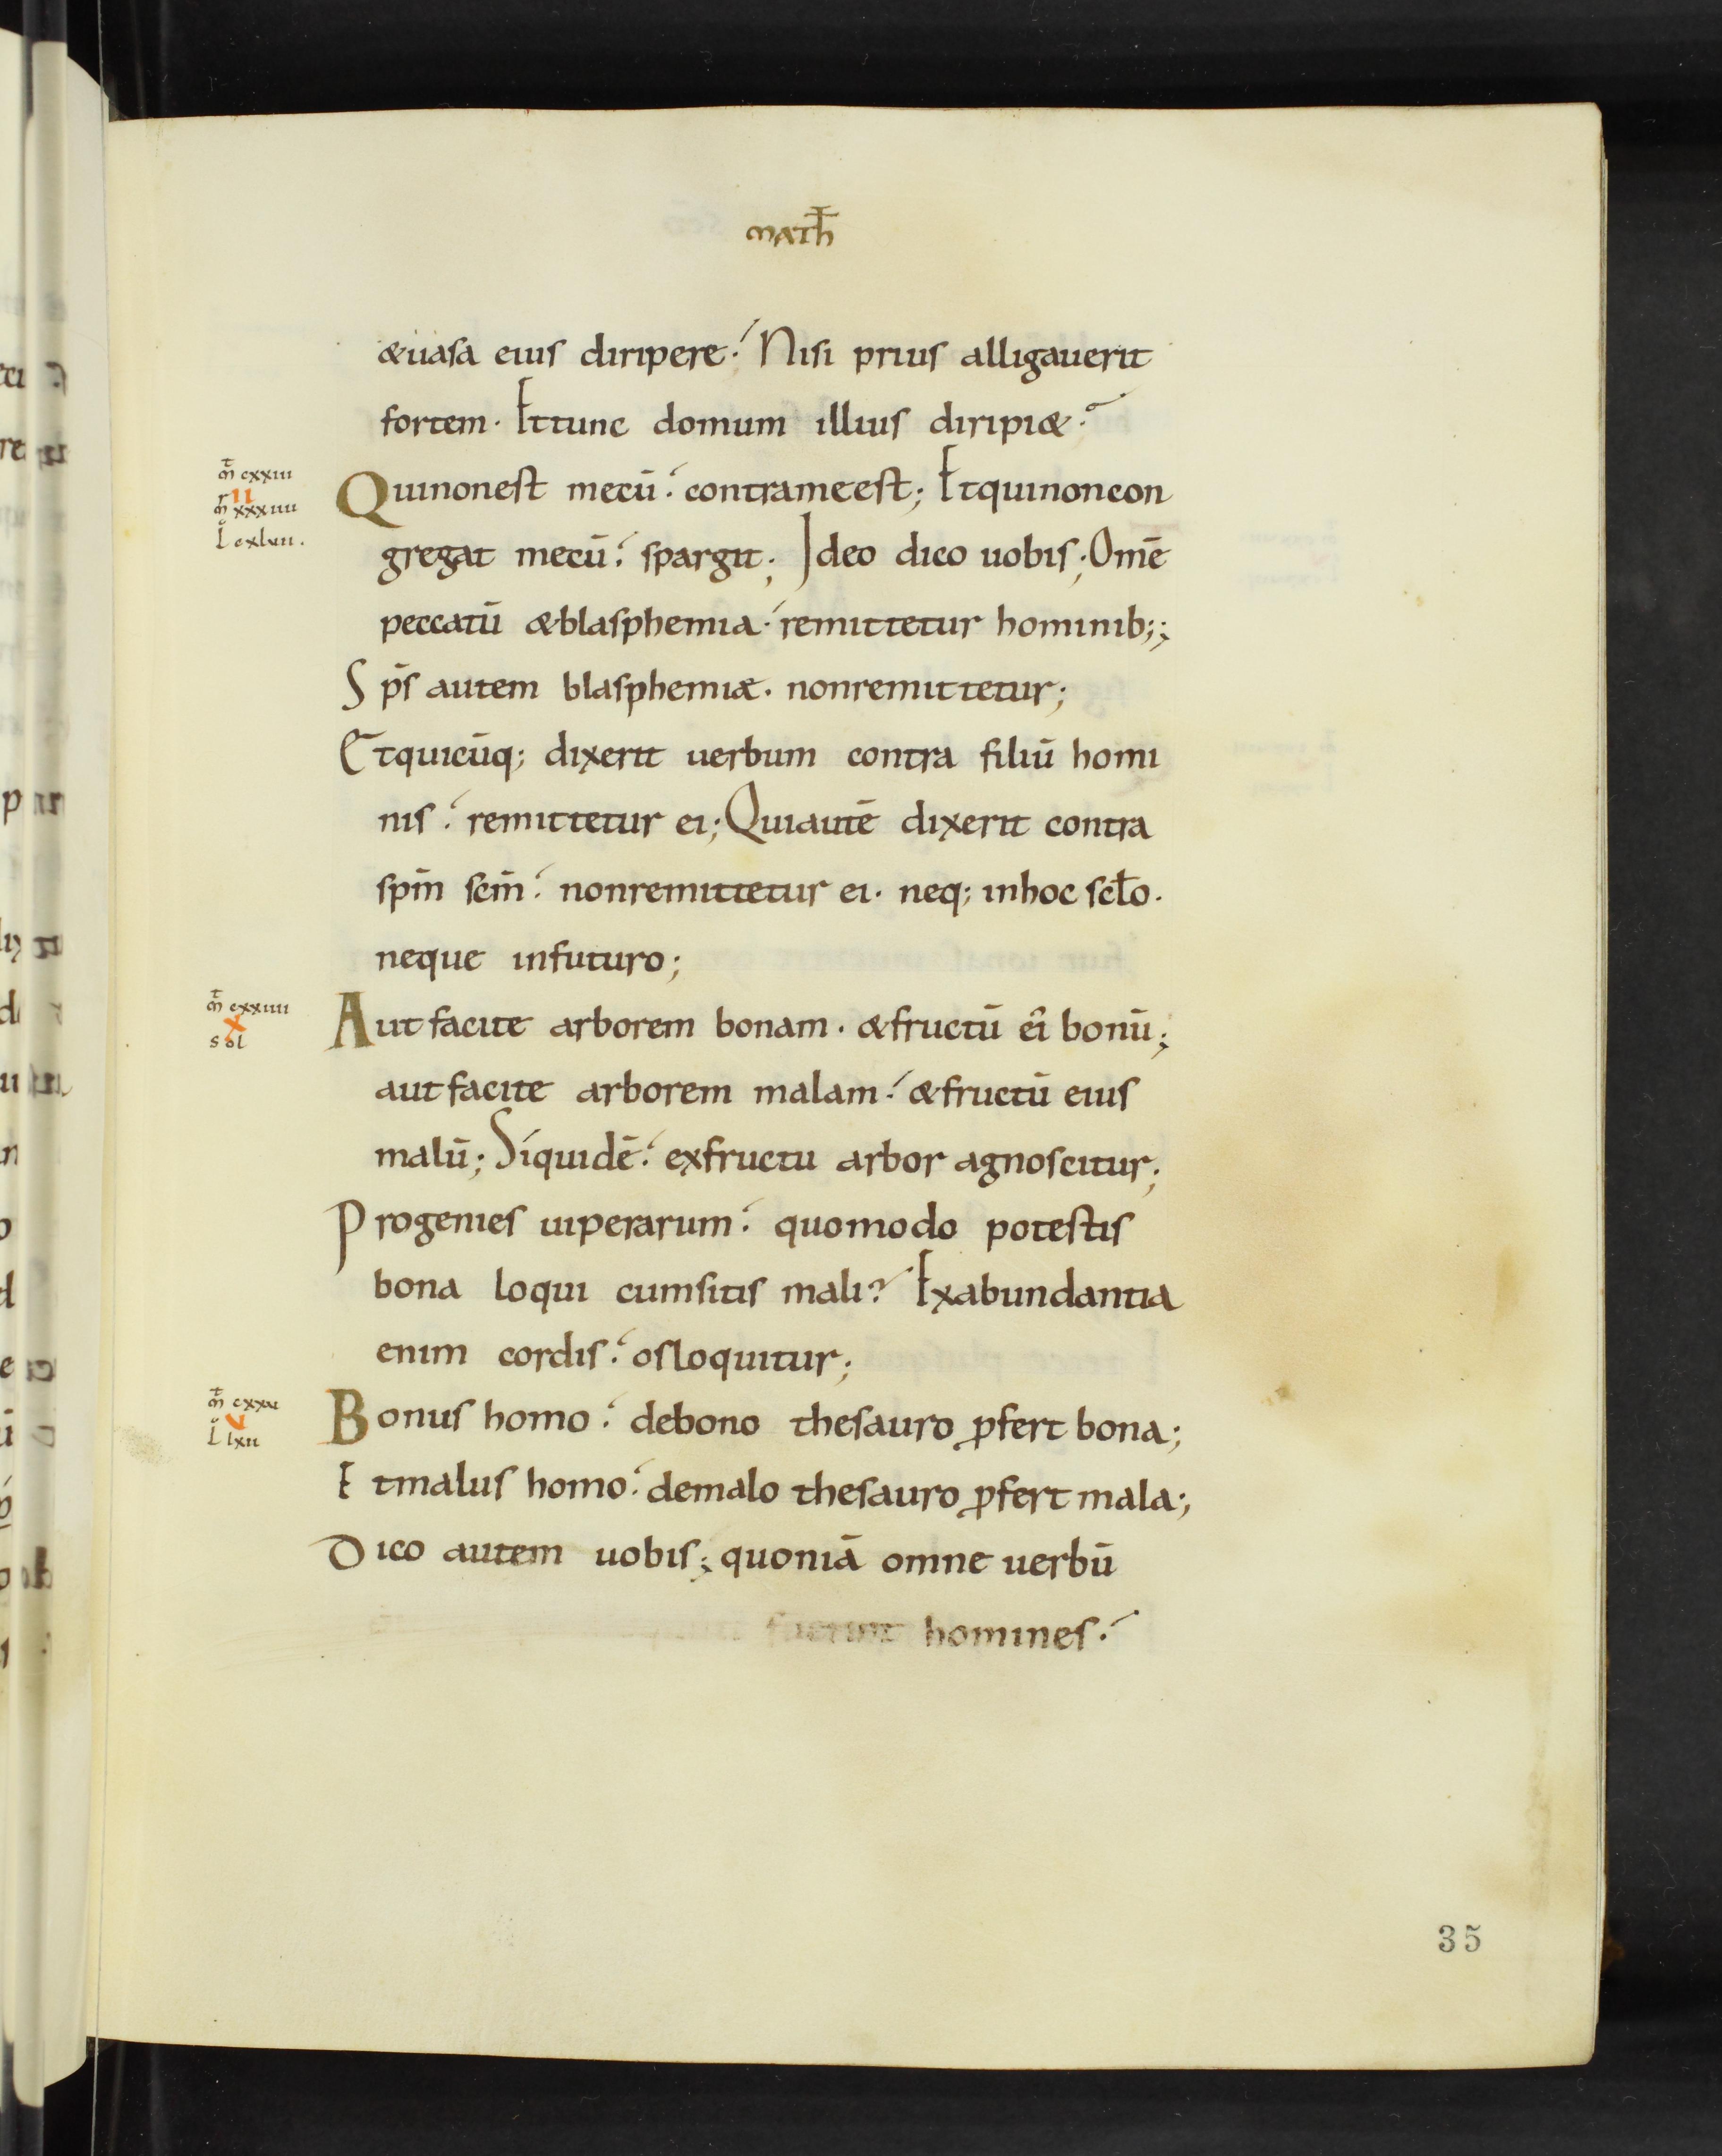 math̄
&uasa eius diripere. Nisi prius alligauerit
fortem. Ettunc domum illius diripi&.
m̄ cxxiii
r̄ ii
m̄ xxxiiii
l cxlvii.
Quinonest mecū. contrameest; Etquinoncon
gregat mecū. spargit; Ideo dico uobis; Omē
peccatū &blasphemia. remittetur hominib;;
Sps̄ autem blasphemiæ. nonremittetur;
Etquicūq; dixerit uerbum contra filiū homi
nis. remittetur ei; Quiautē dixerit contra
spm̄ scm̄. nonremittetur ei. neq; inhoc scło.
neque infuturo;
m̄ cxxiiii
x
sol
Autfacite arborem bonam. &fructū eī bonū;
autfacite arborem malam. &fructū eius
malū; Síquidē. exfructu arbor agnoscitur;
Progenies uiperarum. quomodo potestis
bona loqui cumsitis mali? Exabundantia
enim cordis. osloquitur;
m̄ cxxv
v
l lxii
Bonus homo. debono thesauro ꝓfert bona;
Etmalus homo. demalo thesauro ꝓfert mala;
Dico autem uobis; quoniā omne uerbū
fuerint homines.
35